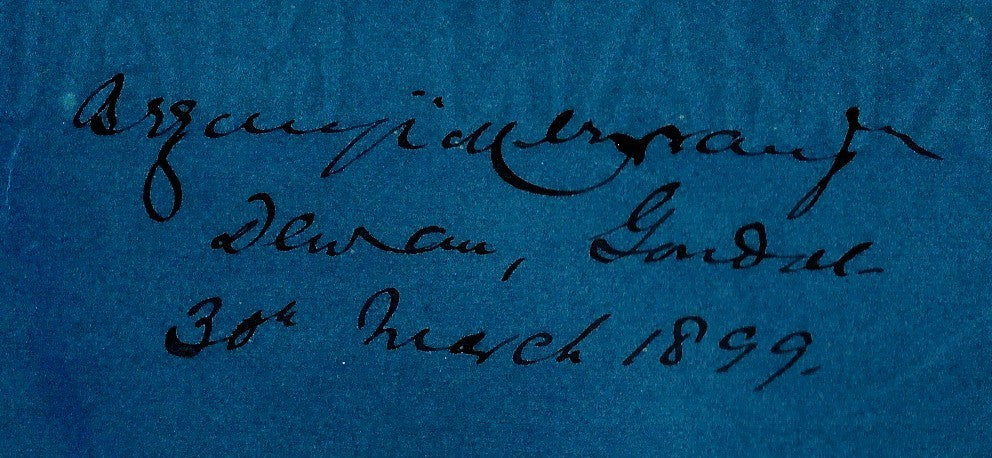 Bezanji Merwanji
Dewan, Gondal
30th March 1899.